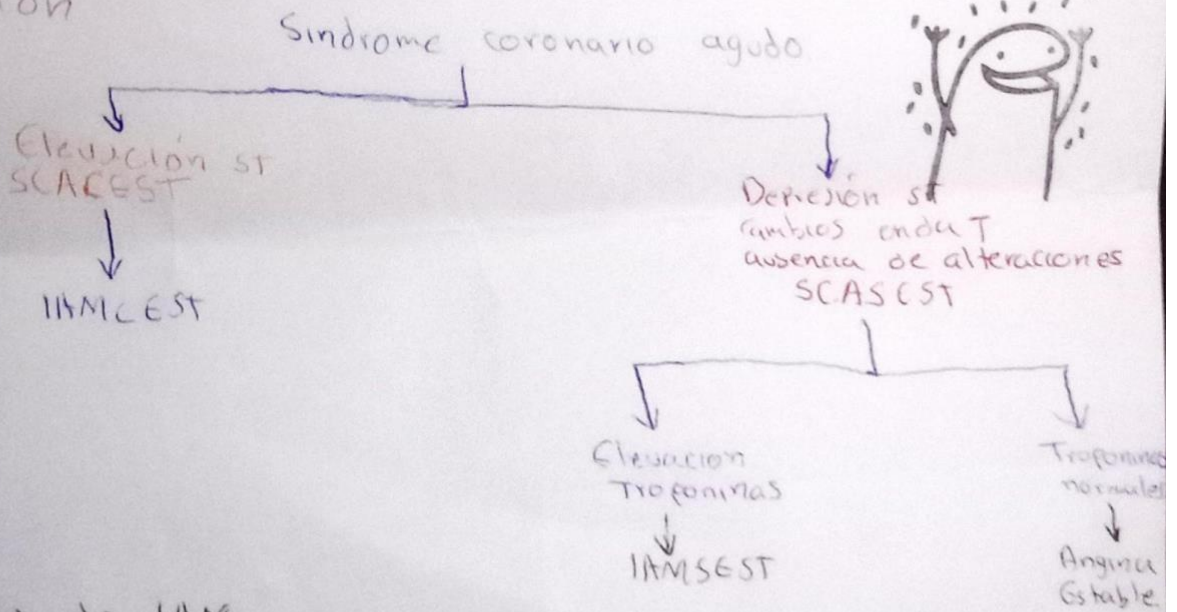 Sindrome coronario agudo
Elevación ST
SCACEST
IAMCEST
Depresión ST
cambios onda T
ausencia de alteraciones
SCASEST
Elevacion
Troponinas
IAMSEST
Troponinas
normales
Angina
Estable